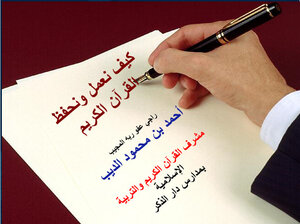 كيف نعمل ونحفظ
القرآن الكريم
راجي عفو ربه المجيب
أحمد بن محمود الديب
مشرف القرآن الكريم والتربية
الإسلامية
بمدارس دار الذكر